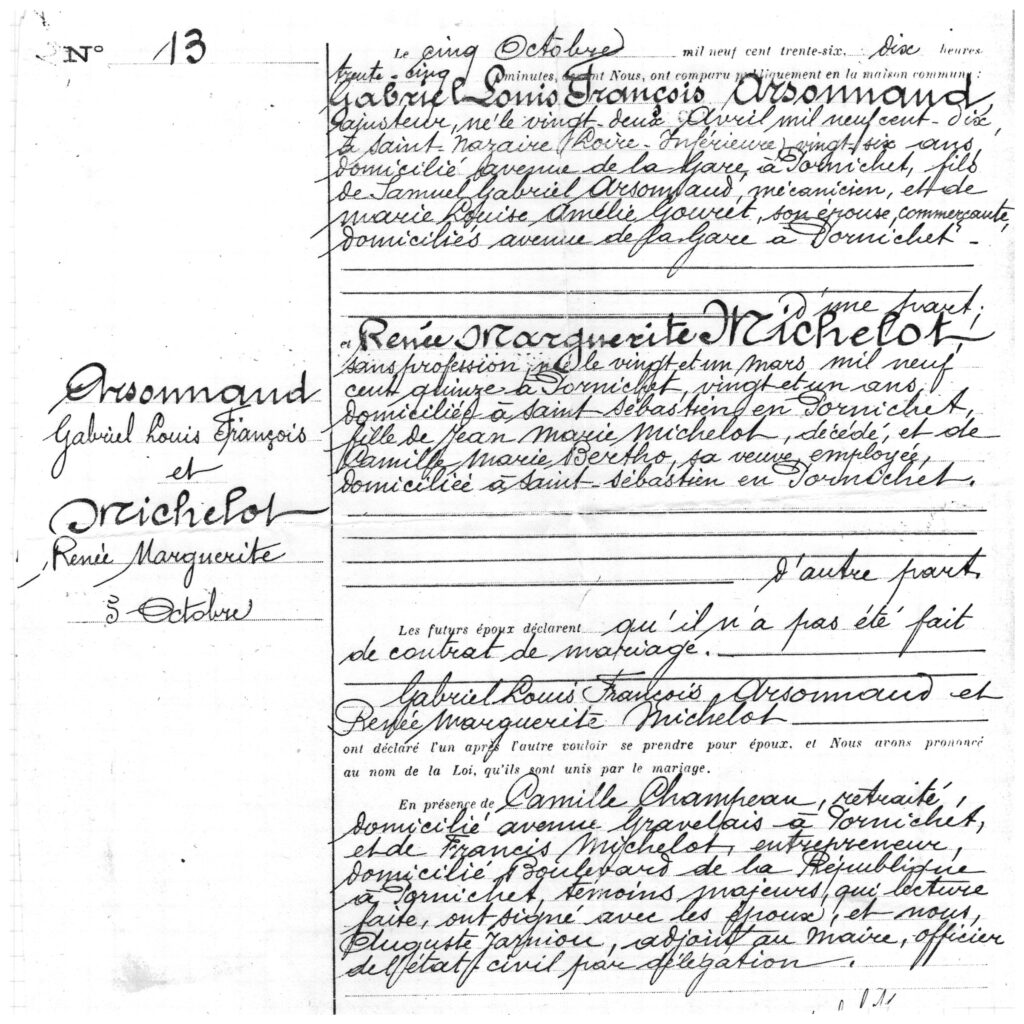 N° 13
Arsonnaud
Gabriel Louis François
et
Michelot
Renée Marguerite
5 Octobre
Le cinq Octobre mil neuf cent trente-six, dix heures
trente-cinq minutes, devant Nous, ont comparu publiquement en la maison commune :
Gabriel Louis François Arsonnaud,
ajusteur, né le vingt-deux Avril mil neuf cent-dix,
à Saint-Nazaire (Loire-Inférieure) vingt-six ans
domicilié avenue de la Gare, à Pornichet, fils
de Samuel Gabriel Arsonnaud, mécanicien, et de
Marie Louise Amélie Gouret, son épouse, commerçante,
domiciliés avenue de la Gare à Pornichet -
d'une part;
et Renée Marguerite Michelot,
sans profession, née le vingt et un mars mil neuf
cent quinze à Pornichet, vingt et un ans,
domiciliée à Saint-Sébastien en Pornichet,
fille de Jean Marie Michelot, décédé, et de
Camille Marie Bertho, sa veuve, employée,
domiciliée à Saint-Sébastien en Pornichet.
d'autre part.
Les futurs époux déclarent qu'il n'a pas été fait
de contrat de mariage.
Gabriel Louis François Arsonnaud et
Renée Marguerite Michelot
ont déclaré l'un après l'autre vouloir se prendre pour époux, et Nous avons prononcé
au nom de la Loi, qu'ils sont unis par le mariage.
En présence de Camille Champeau, retraité,
domicilié avenue Gravelais à Pornichet,
et de Francis Michelot, entrepreneur,
domicilié Boulevard de la République
à Pornichet, témoins majeurs, qui lecture
faite, ont signé avec les époux, et nous,
Auguste Jarniou, adjoint au Maire, officier
de l'état civil par délégation.